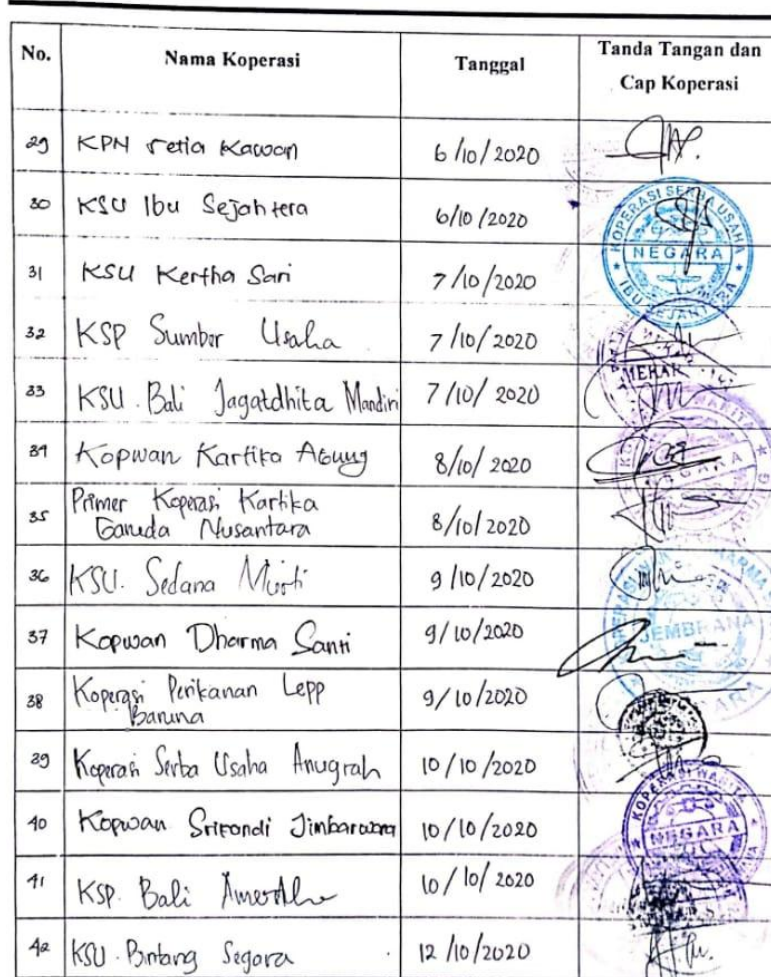 No. Nama Koperasi Tanggal Tanda Tangan dan
Cap Koperasi
29 KPN Setia Kawan 6/10/2020
30 KSU Ibu Sejahtera 6/10/2020
KOPERASI SERBA USAHA
NEGARA
IBU SEJAHTERA
31 KSU Kertha Sari 7/10/2020
32 KSP Sumber Usaha 7/10/2020
33 KSU. Bali Jagatdhita Mandiri 7/10/2020
34 Kopwan Kartika Agung 8/10/2020
35 Primer Koperasi Kartika
Garuda Nusantara 8/10/2020
36 KSU. Sedana Murti 9/10/2020
37 Kopwan Dharma Santi 9/10/2020
JEMBRANA
38 Koperasi Perikanan Lepp
Baruna 9/10/2020
39 Koperasi Serba Usaha Anugrah 10/10/2020
40 Kopwan Srikandi Jimbarwana 10/10/2020
KOPERASI WANITA
NEGARA
41 KSP. Bali 10/10/2020
42 KSU. Bintang Segara 12/10/2020